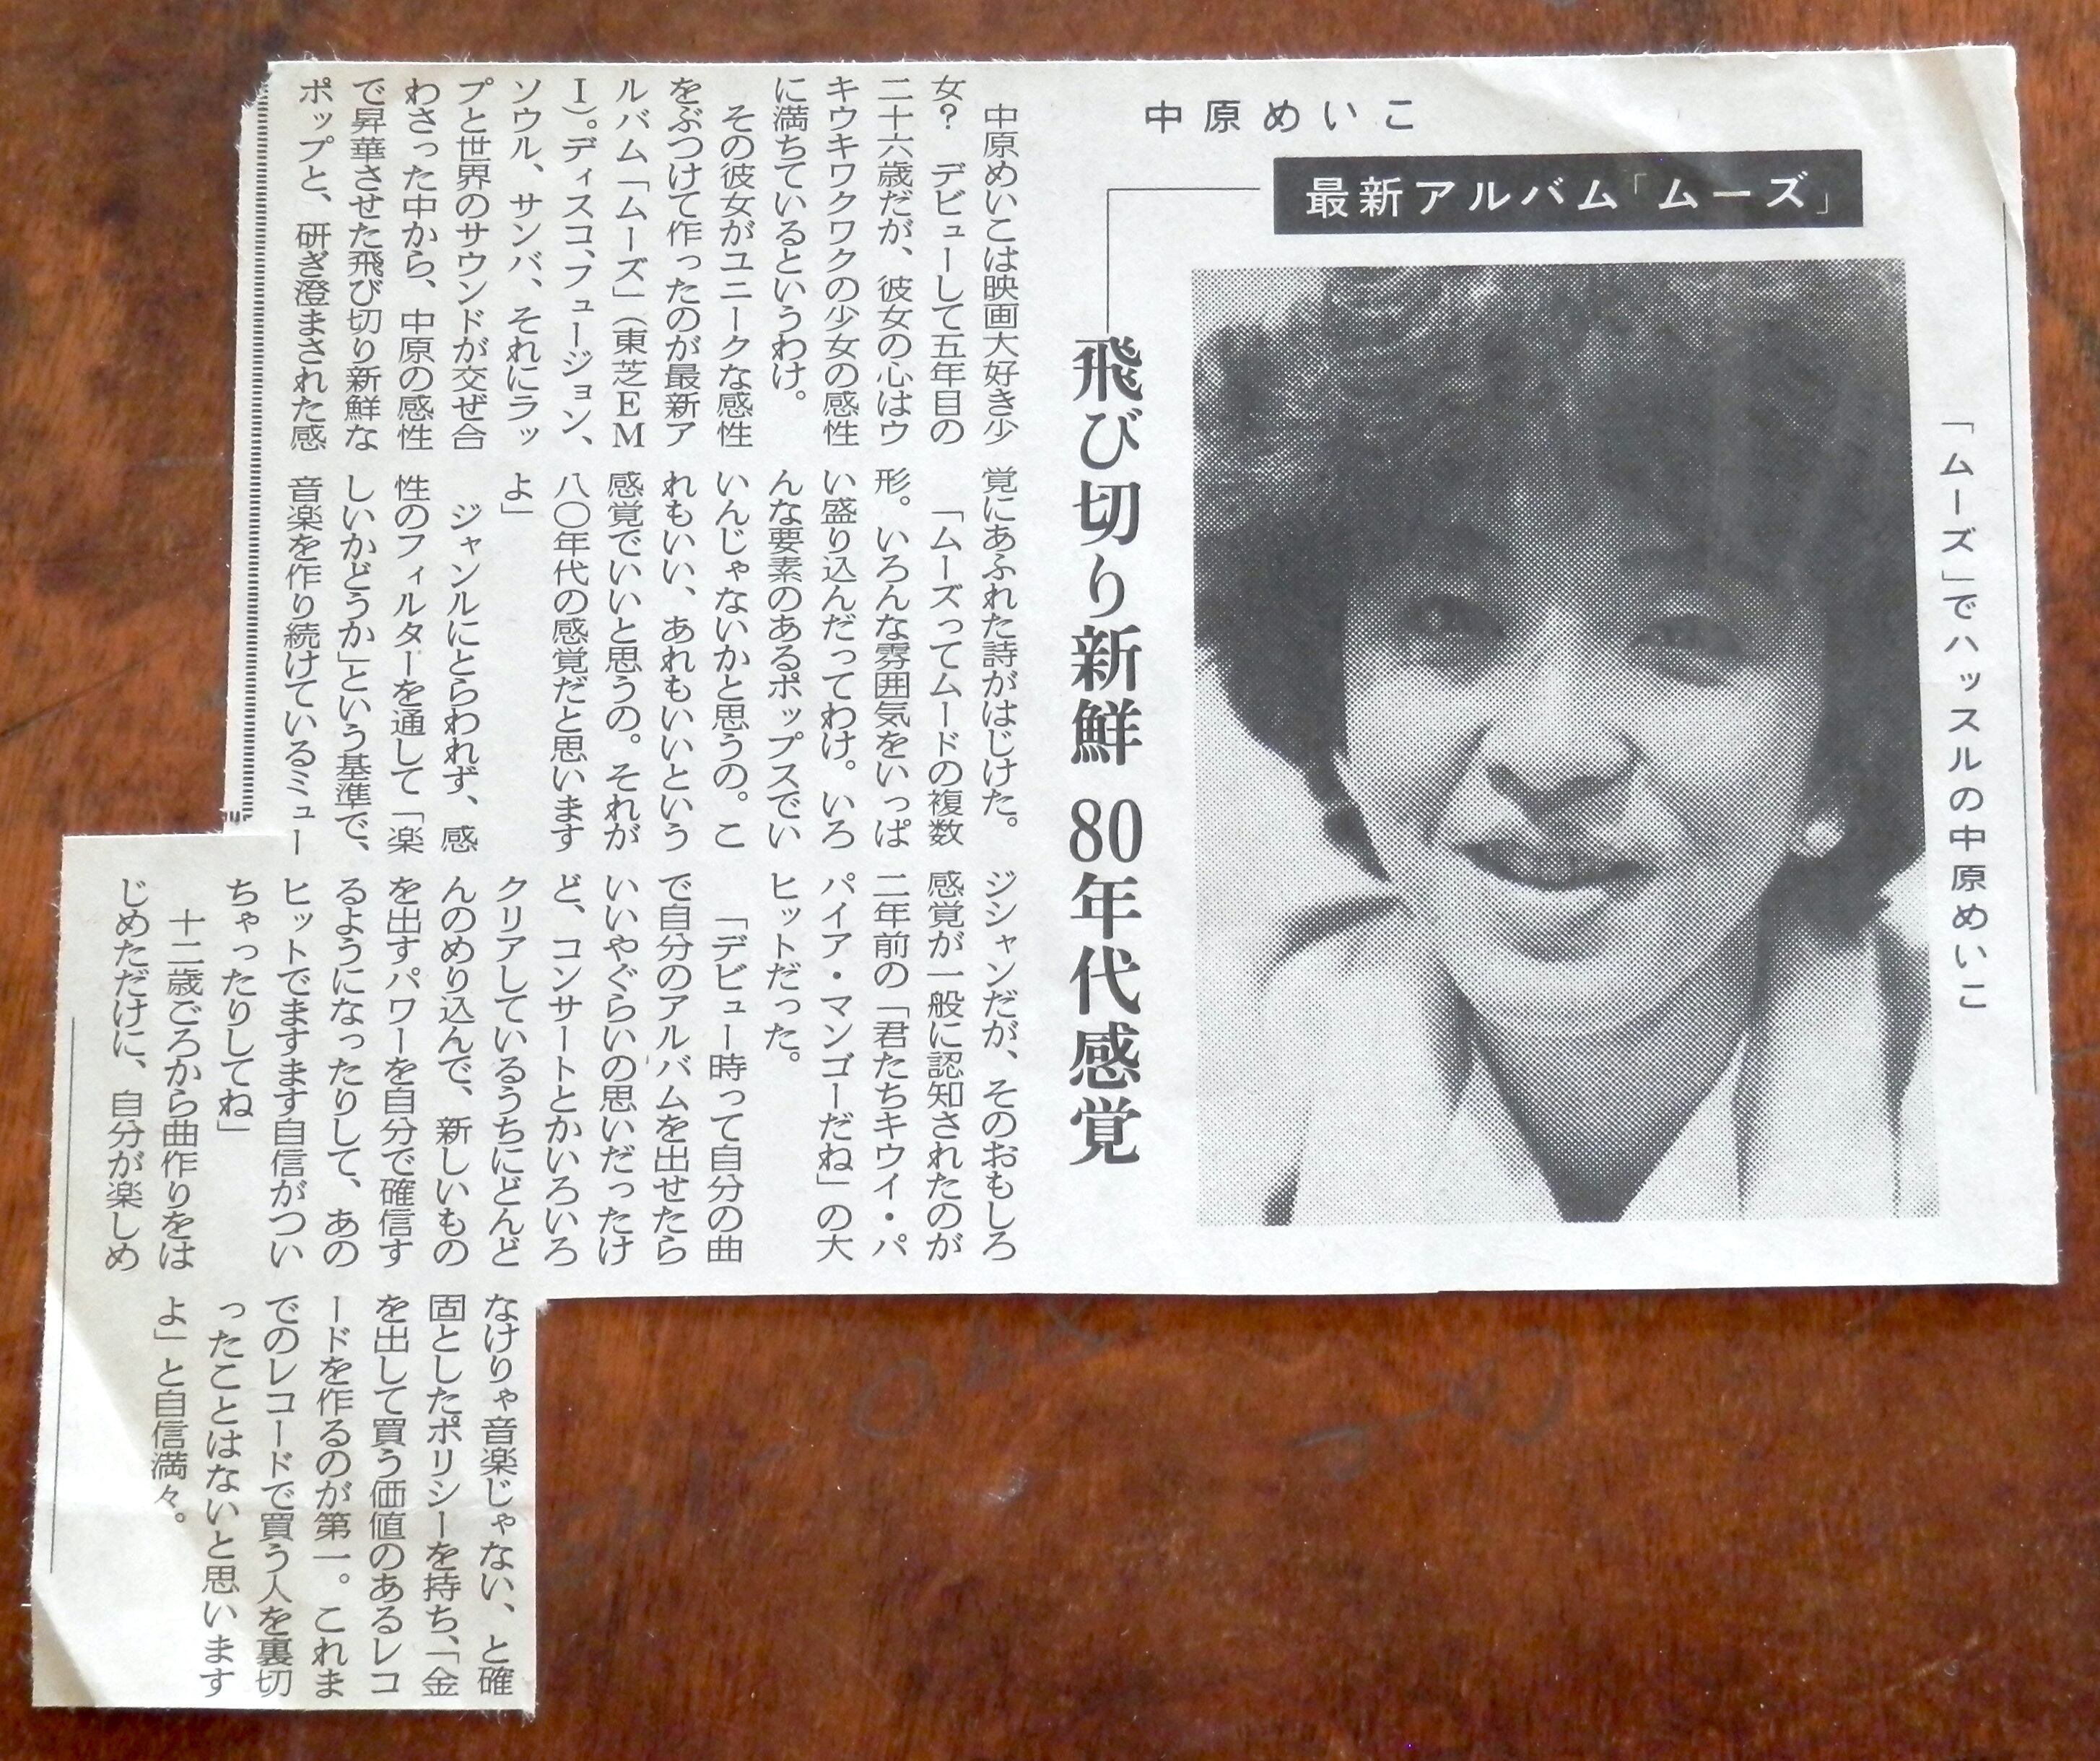 中原めいこ
最新アルバム「ムーズ」
飛び切り新鮮 80年代感覚
「ムーズ」でハッスルの中原めいこ
中原めいこは映画大好き少
女？　デビューして五年目の
二十六歳だが、彼女の心はウ
キウキワクワクの少女の感性
に満ちているというわけ。
その彼女がユニークな感性
をぶつけて作ったのが最新ア
ルバム「ムーズ」（東芝ＥＭ
Ｉ）。ディスコ、フュージョン、
ソウル、サンバ、それにラッ
プと世界のサウンドが交ぜ合
わさった中から、中原の感性
で昇華させた飛び切り新鮮な
ポップと、研ぎ澄まされた感
覚にあふれた詩がはじけた。
「ムーズってムードの複数
形。いろんな雰囲気をいっぱ
い盛り込んだってわけ。いろ
んな要素のあるポップスでい
いんじゃないかと思うの。こ
れもいい、あれもいいという
感覚でいいと思うの。それが
八〇年代の感覚だと思います
よ」
ジャンルにとらわれず、感
性のフィルターを通して「楽
しいかどうか」という基準で、
音楽を作り続けているミュー
ジシャンだが、そのおもしろ
感覚が一般に認知されたのが
二年前の「君たちキウイ・パ
パイア・マンゴーだね」の大
ヒットだった。
「デビュー時って自分の曲
で自分のアルバムを出せたら
いいやぐらいの思いだったけ
ど、コンサートとかいろいろ
クリアしているうちにどんど
んのめり込んで、新しいもの
を出すパワーを自分で確信す
るようになったりして、あの
ヒットでますます自信がつい
ちゃったりしてね」
十二歳ごろから曲作りをは
じめただけに、自分が楽しめ
なけりゃ音楽じゃない、と確
固としたポリシーを持ち、「金
を出して買う価値のあるレコ
ードを作るのが第一。これま
でのレコードで買う人を裏切
ったことはないと思います
よ」と自信満々。